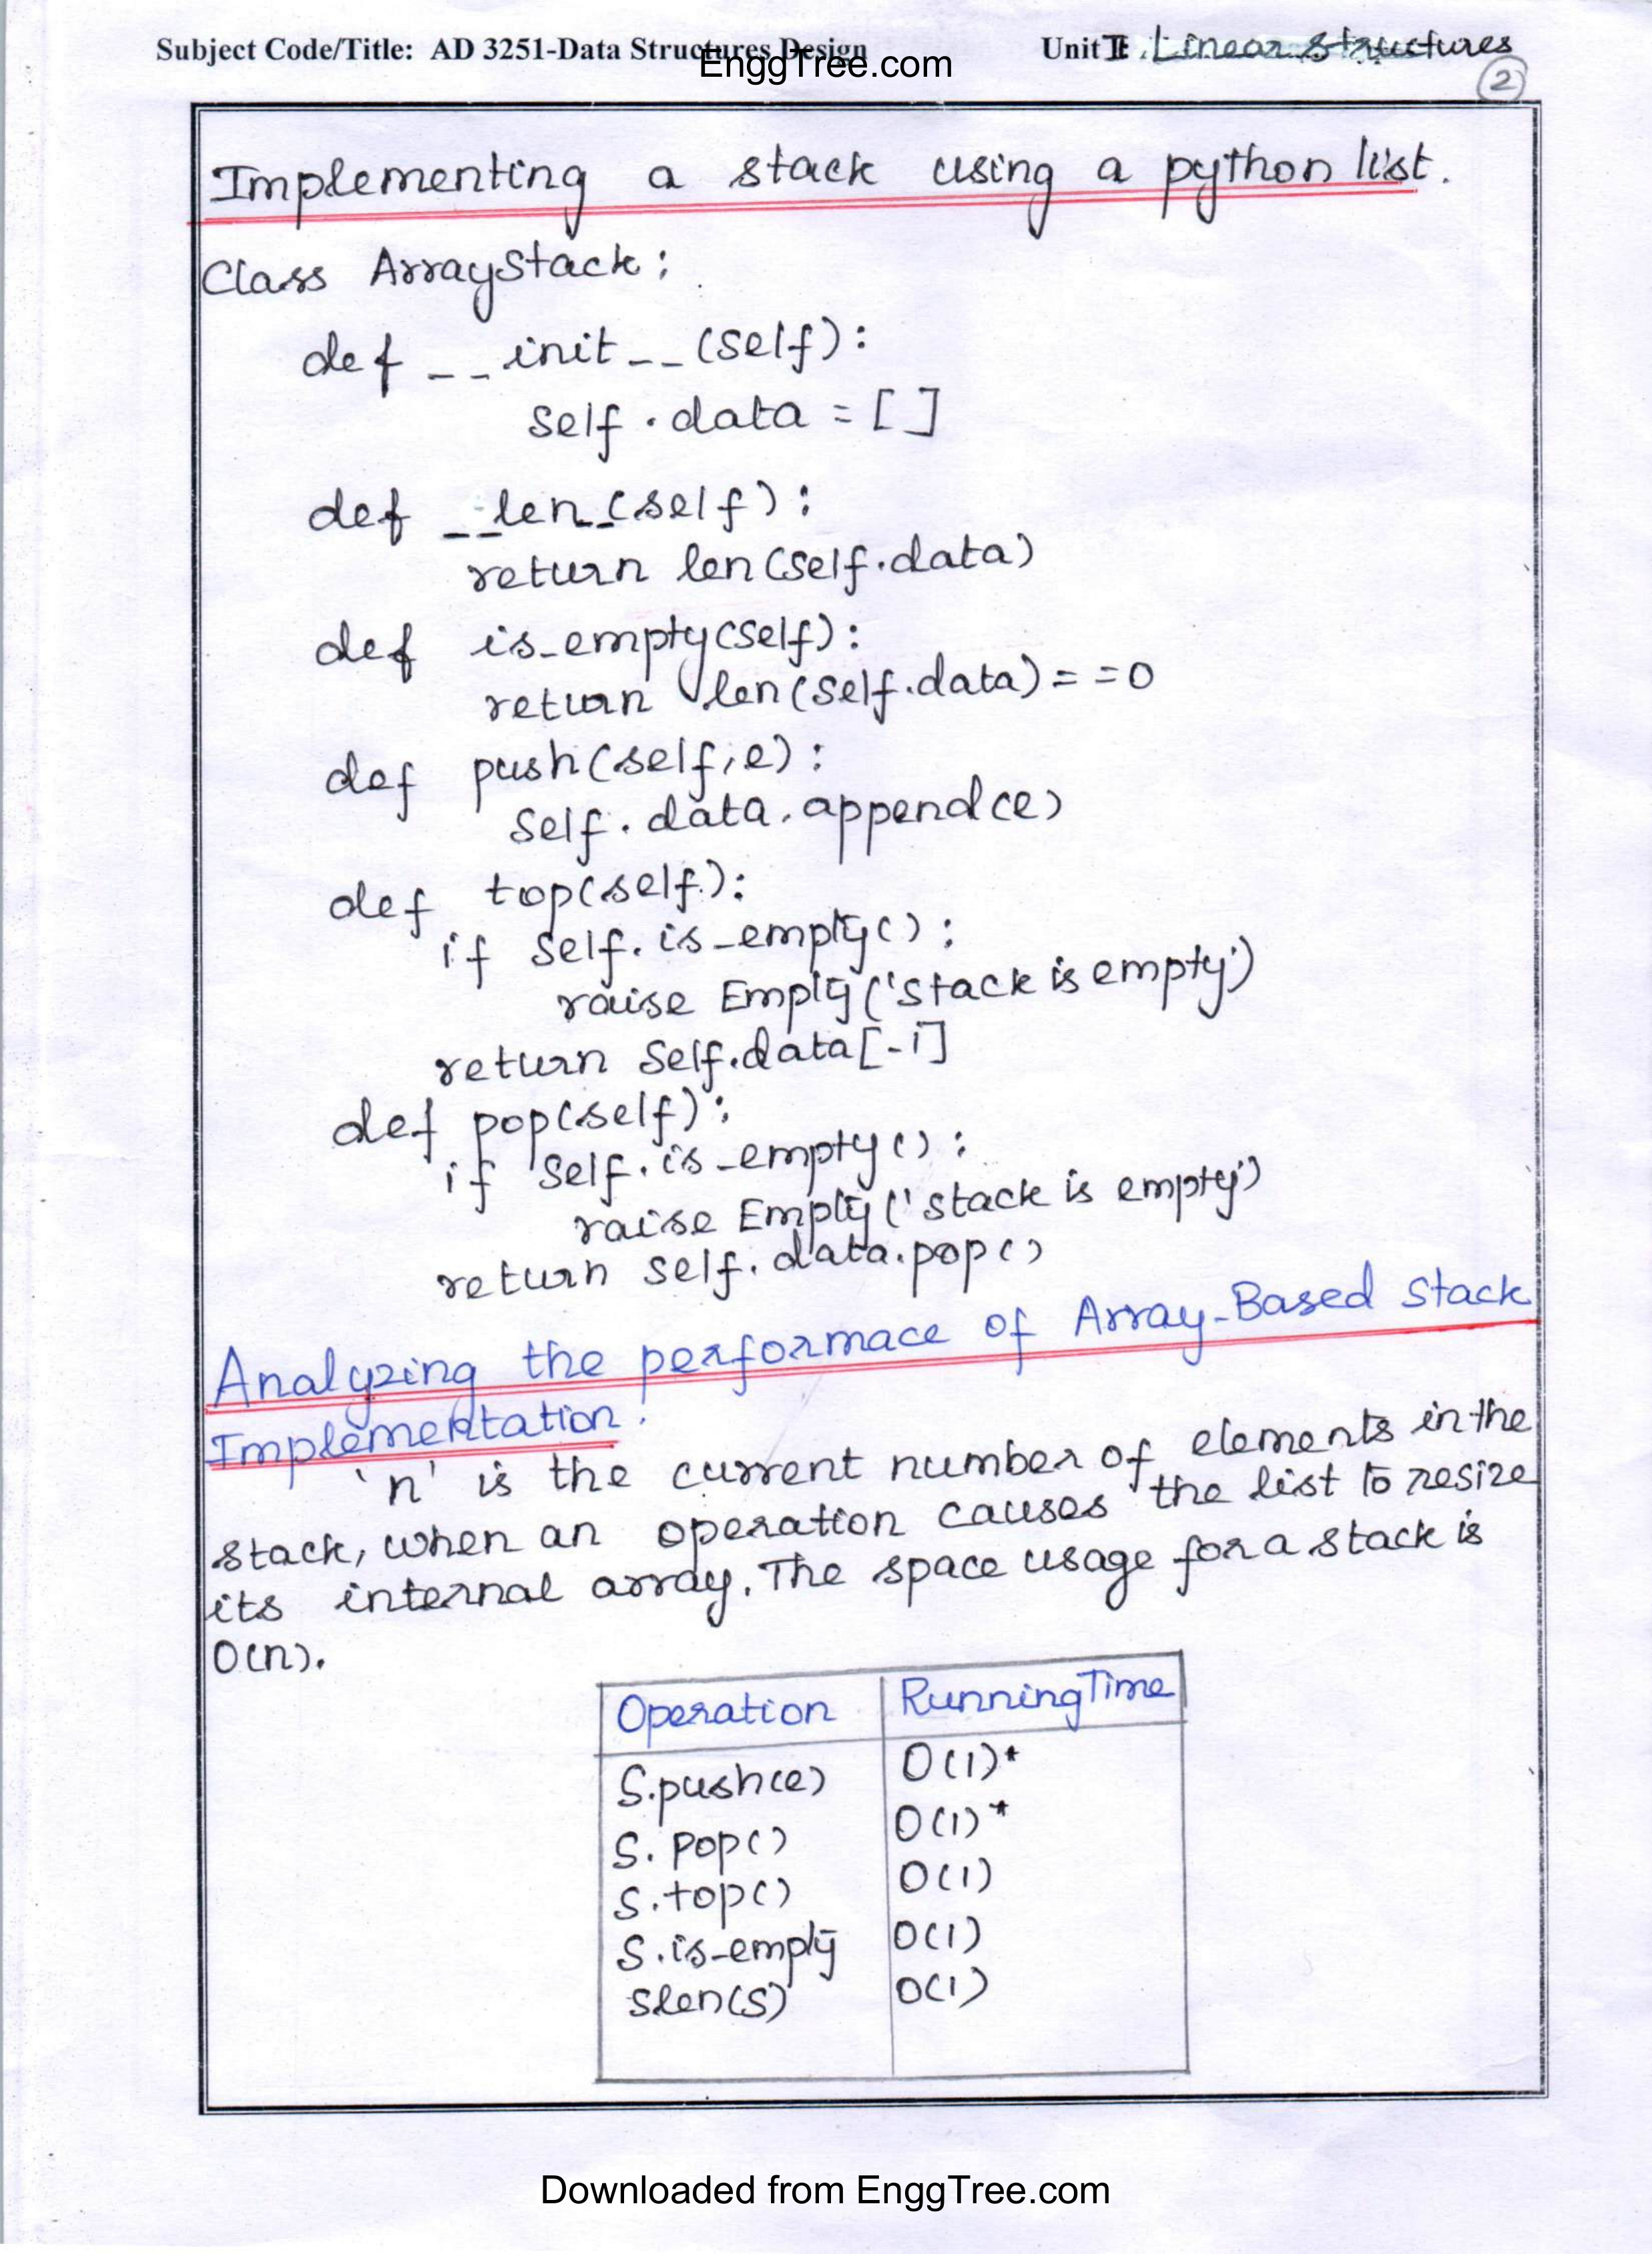 Subject Code/Title: AD 3251-Data Structures Design
EnggTree.com
Unit II: Linear Structures
2
Implementing a stack using a python list.
Class ArrayStack:
def __init__(self):
self.data = []
def __len__(self):
return len(self.data)
def is_empty(self):
return len(self.data)==0
def push(self,e):
self.data.append(e)
def top(self):
if self.is_empty():
raise Empty('stack is empty')
return self.data[-1]
def pop(self):
if self.is_empty():
raise Empty('stack is empty')
return self.data.pop()
Analyzing the performace of Array-Based Stack
Implementation.
'n' is the current number of elements in the
stack, when an operation causes the list to resize
its internal array. The space usage for a stack is
O(n).
Operation RunningTime
S.push(e) O(1)*
S.pop() O(1)*
S.top() O(1)
S.is-empty O(1)
Slen(S) O(1)
Downloaded from EnggTree.com